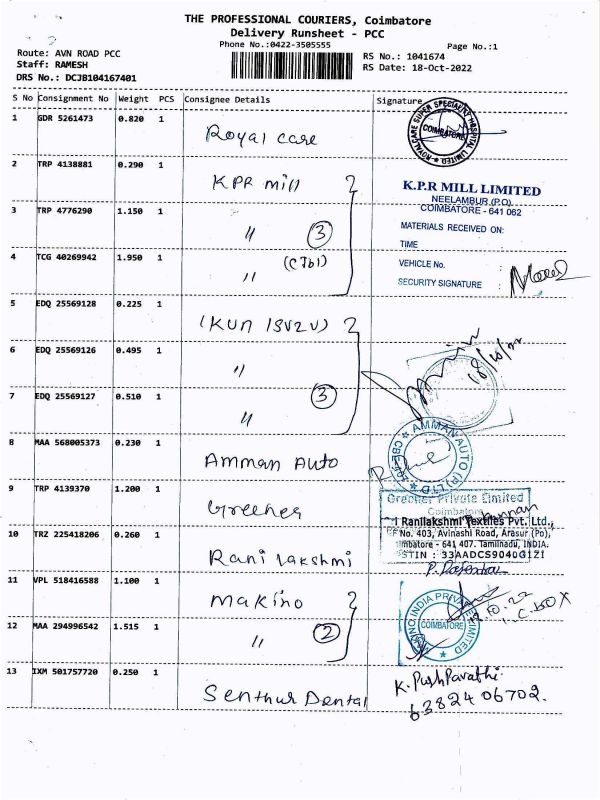 THE PROFESSIONAL COURIERS, Coimbatore
Delivery Runsheet - PCC
Phone No.:0422-3505555
Page No.:1
Route: AVN ROAD PCC
Staff: RAMESH
DRS No.: DCJB104167401
RS No.: 1041674
RS Date: 18-Oct-2022
S No Consignment No Weight PCS Consignee Details Signature
1 GDR 5261473 0.820 1 Royal care
ROYALCARE SUPER SPECIALITY HOSPITAL LIMITED
COIMBATORE
2 TRP 4138881 0.290 1 KPR mill
K.P.R MILL LIMITED
NEELAMBUR (P.O)
COIMBATORE - 641 062
3 TRP 4776290 1.150 1 " 3
MATERIALS RECEIVED ON:
TIME
4 TCG 40269942 1.950 1 "
VEHICLE No. :
SECURITY SIGNATURE :
5 EDQ 25569128 0.225 1 (KUN
6 EDQ 25569126 0.495 1 "
18/10/22
7 EDQ 25569127 0.510 1 " 3
8 MAA 568005373 0.230 1 Amman Auto
AMMAN AUTO (P) LTD
9 TRP 4139370 1.200 1 Greener
Greener Private Limited
Coimbatore
10 TRZ 225418206 0.260 1 Rani Lakshmi
i Ranilakshmi Textiles Pvt. Ltd.,
No. 403, Avinashi Road, Arasur (Po),
mbatore - 641 407. Tamilnadu, INDIA.
STIN : 33AADCS9040G1ZI
11 VPL 518416588 1.100 1 Makino
12 MAA 294996542 1.515 1 " 2
INDIA PRIVATE LIMITED
COIMBATORE
13 IXM 501757720 0.250 1 Senthur Dental
K. PushPavathi
63824 06702.